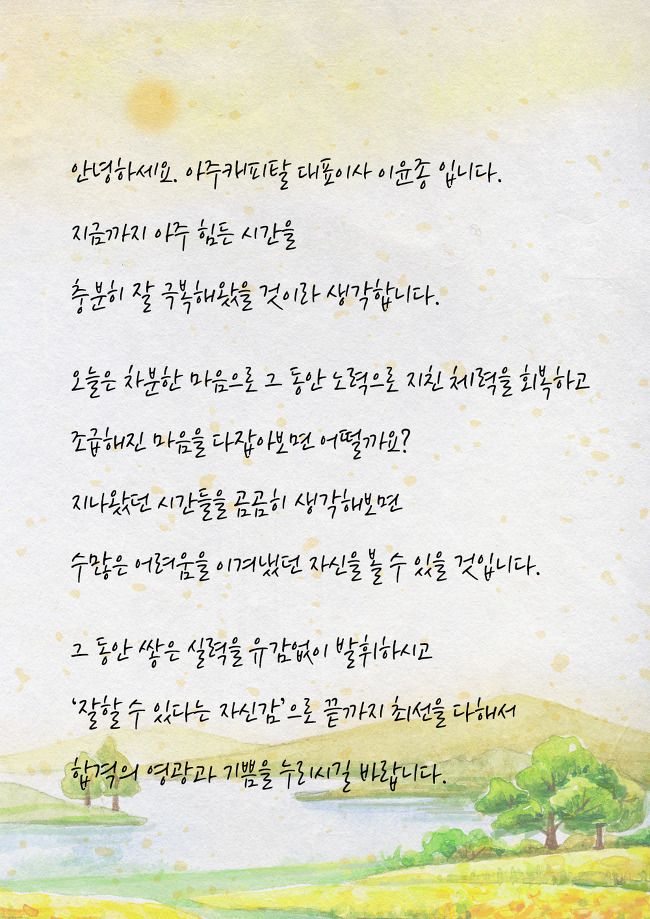 안녕하세요. 아주캐피탈 대표이사 이윤종 입니다.
지금까지 아주 힘든 시간을
충분히 잘 극복해왔을 것이라 생각합니다.
오늘은 차분한 마음으로 그 동안 노력으로 지친 체력을 회복하고
조급해진 마음을 다잡아보면 어떨까요?
지나왔던 시간들을 곰곰히 생각해보면
수많은 어려움을 이겨냈던 자신을 볼 수 있을 것입니다.
그 동안 쌓은 실력을 유감없이 발휘하시고
‘잘할 수 있다는 자신감’으로 끝까지 최선을 다해서
합격의 영광과 기쁨을 누리시길 바랍니다.